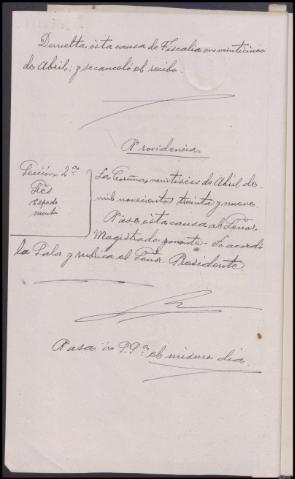 Devuelta esta causa de Fiscalia en veinticinco
de Abril; y se canceló el recibo.
Providencia
Sección 2ª
La Coruña, veintiseis de Abril de
mil novecientos treinta y nueve
Pase esta causa al Señor
Magistrado ponente. Lo acordó
la Sala y rubrica el Señor Presidente.
Pasa
el mismo dia.